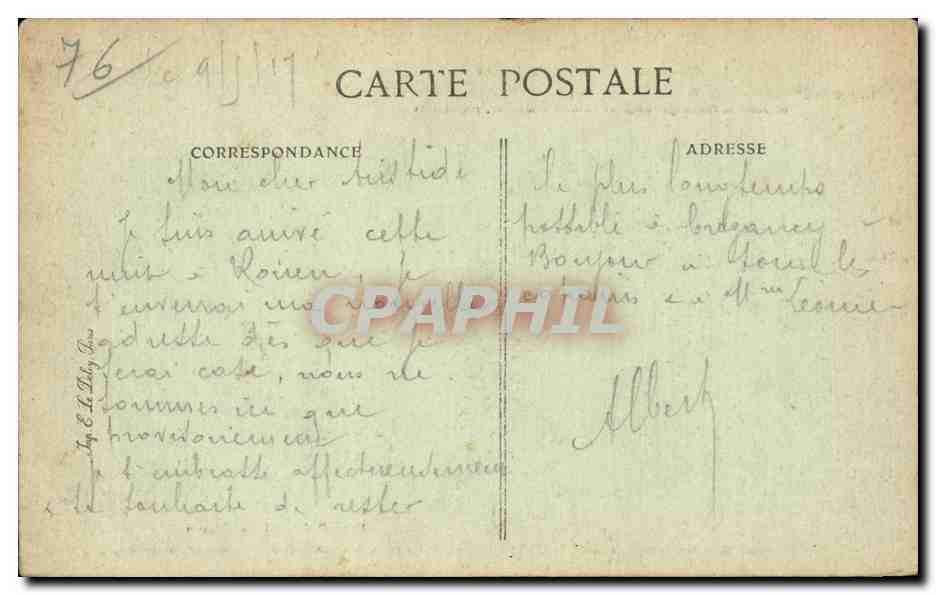 76
9/5/17
CARTE POSTALE
CORRESPONDANCE
ADRESSE
Mon cher Aristide
Je suis arrivé cette
nuit à Rouen, je
t'enverrai ma nouvelle
adresse dès que je
serai casé, nous ne
sommes ici que
provisoirement
je t'embrasse affectueusement
te souhaite de rester
le plus longtemps
possible à
Bonjour à tous les
copains et à Mme
Albert
Imp. E. Le Deley, Paris
CPAPHIL